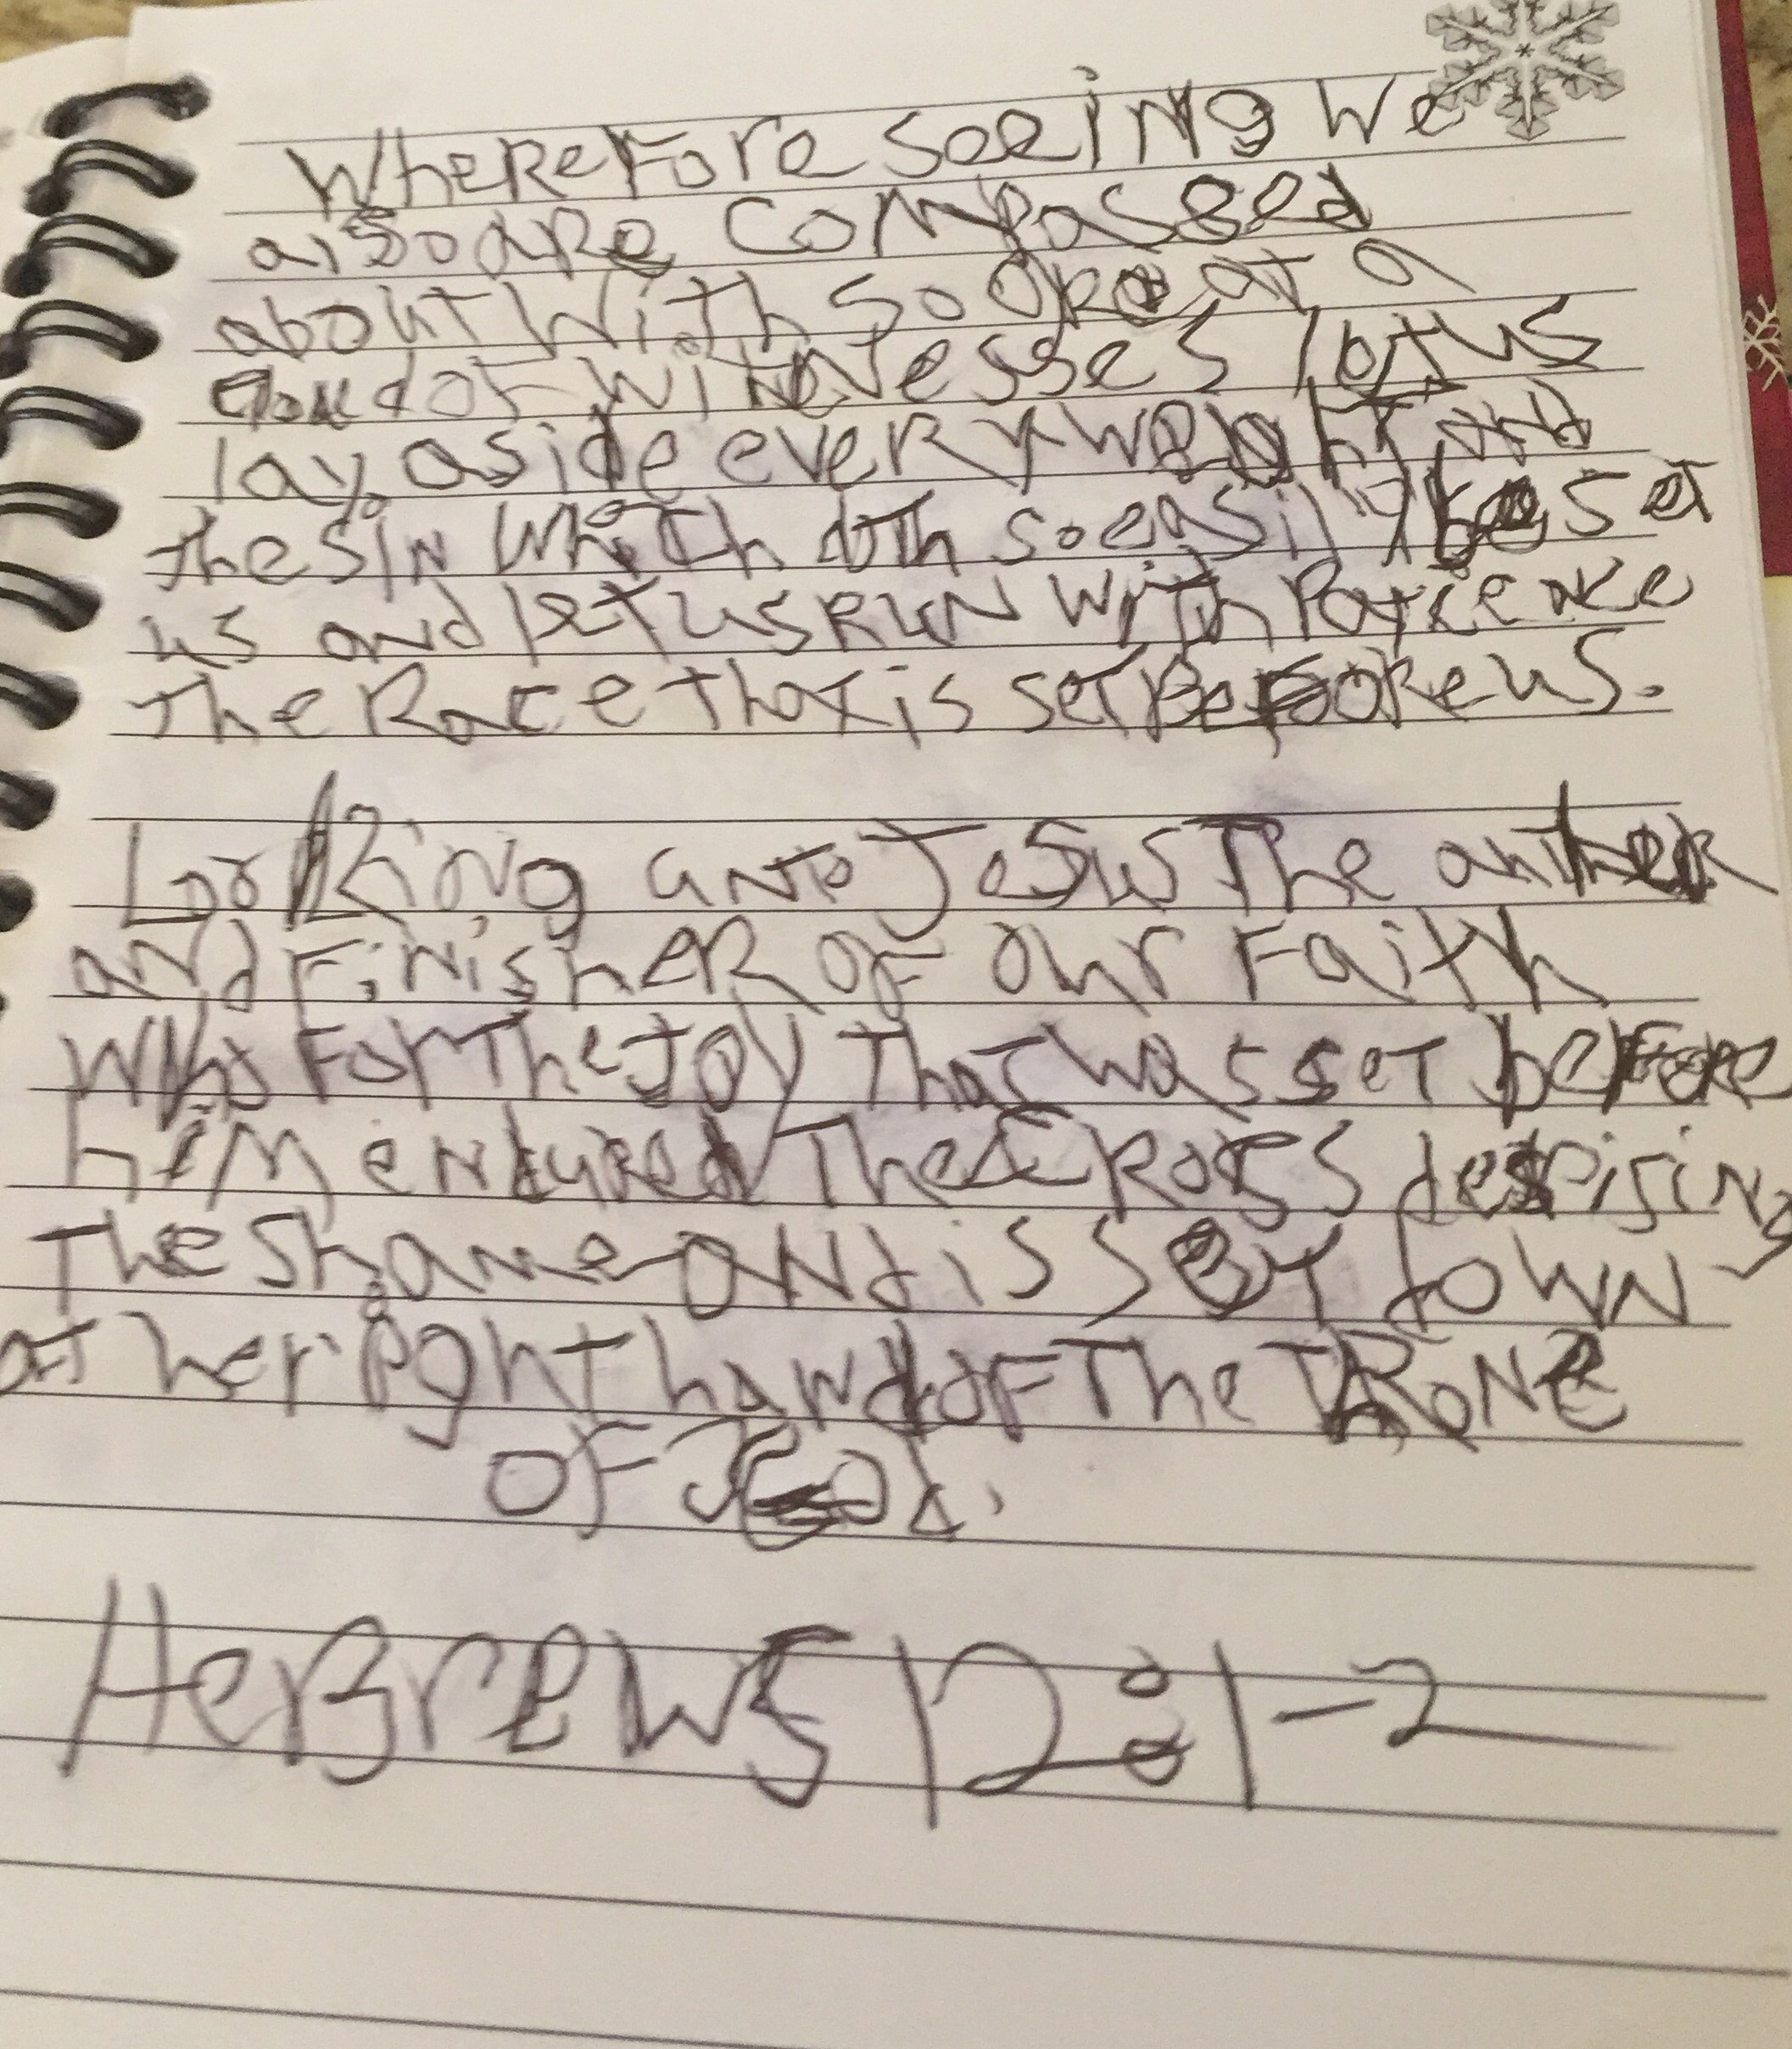 Wherefore seeing we
also are compassed
about with so great a
cloud of witnesses let us
lay aside every weight and
the sin which doth so easily beset
us and let us run with Patience
the Race that is set Before us.
Looking unto Jesus The auther
and Finisher of our Faith
who For The Joy That was set before
him endured The CRoss despising
The Shame and is set down
at he right hand of The TRone
of God.
HeBrews 12:1-2